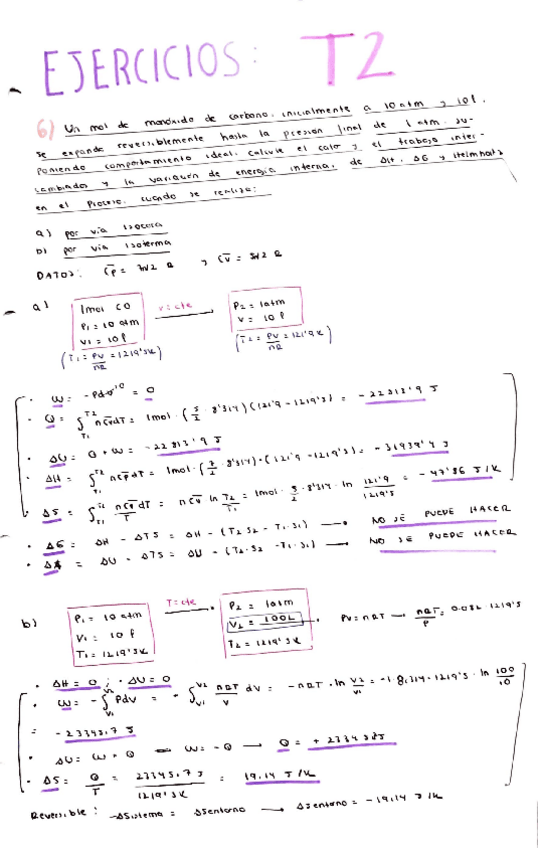 EJERCICIOS: T2
6) Un mol de monóxido de carbono, inicialmente a 10 atm y 10 l,
se expande reversiblemente hasta la presión final de 1 atm. Su-
poniendo comportamiento ideal, calcule el calor y el trabajo inter-
cambiados y la variación de energía interna, de ΔH, ΔG y Helmholtz
en el proceso, cuando se realiza:
a) por vía isocora
b) por vía isoterma
DATOS: C̄p = 7/2 R , C̄v = 5/2 R
a)
1mol CO
P1 = 10 atm
V1 = 10 l
(T1 = PV/nR = 1219'5K)
V = cte
P2 = 1atm
V = 10 l
(T2 = PV/nR = 121'9K)
· W = -Pdv = 0
· Q = ∫T1 T2 n C̄v dT = 1mol · (5/2 · 8'314) (121'9 - 1219'5) = -22813'9 J
· ΔU = Q + W = -22813'9 J
· ΔH = ∫T1 T2 n C̄p dT = 1mol · (7/2 · 8'314) · (121'9 - 1219'5) = -31939'4 J
· ΔS = ∫T1 T2 n C̄v dT / T = n C̄v ln T2/T1 = 1mol · 5/2 · 8'314 · ln 121'9/1219'5 = -47'86 J/K
· ΔG = ΔH - ΔTS = ΔH - (T2·S2 - T1·S1) → NO SE PUEDE HACER
· ΔA = ΔU - ΔTS = ΔU - (T2·S2 - T1·S1) → NO SE PUEDE HACER
b)
P1 = 10 atm
V1 = 10 l
T1 = 1219'5K
T = cte
P2 = 1atm
V2 = 100L
T2 = 1219'5K
PV = nRT → nRT/P = 0.082 · 1219'5
· ΔH = 0 ; · ΔU = 0
· W = -∫V1 V2 PdV = -∫V1 V2 nRT/V dV = -nRT · ln V2/V1 = -1 · 8,314 · 1219'5 · ln 100/10
= -23345,7 J
· ΔU = W + Q → W = -Q → Q = +23345,7J
· ΔS = Q/T = 23345,7 J / 1219'5K = 19,14 J/K
Reversible: -ΔSistema = ΔSentorno → ΔSentorno = -19,14 J/K